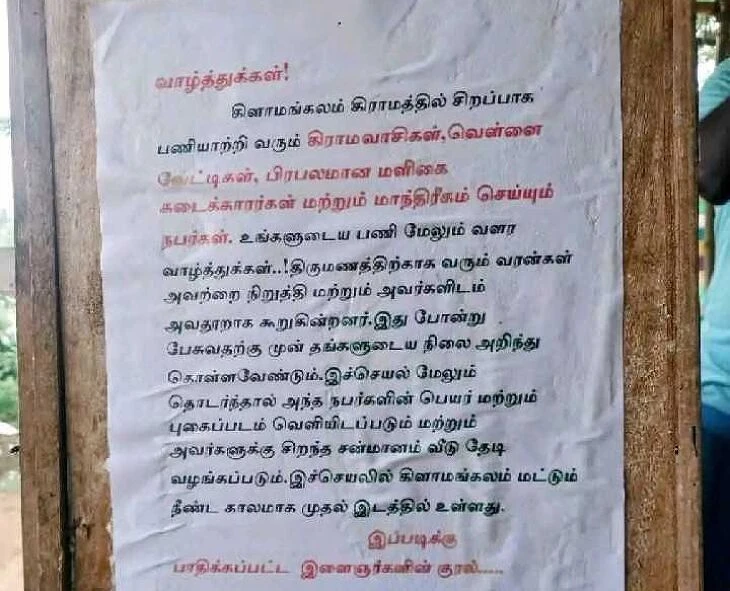 வாழ்த்துக்கள்!
கிளாமங்கலம் கிராமத்தில் சிறப்பாக
பணியாற்றி வரும் கிராமவாசிகள்,வெள்ளை
வேட்டிகள், பிரபலமான மளிகை
கடைக்காரர்கள் மற்றும் மாந்திரீகம் செய்யும்
நபர்கள். உங்களுடைய பணி மேலும் வளர
வாழ்த்துக்கள்..!திருமணத்திற்காக வரும் வரன்கள்
அவற்றை நிறுத்தி மற்றும் அவர்களிடம்
அவதூறாக கூறுகின்றனர்.இது போன்று
பேசுவதற்கு முன் தங்களுடைய நிலை அறிந்து
கொள்ளவேண்டும்.இச்செயல் மேலும்
தொடர்ந்தால் அந்த நபர்களின் பெயர் மற்றும்
புகைப்படம் வெளியிடப்படும் மற்றும்
அவர்களுக்கு சிறந்த சன்மானம் வீடு தேடி
வழங்கப்படும்.இச்செயலில் கிளாமங்கலம் மட்டும்
நீண்ட காலமாக முதல் இடத்தில் உள்ளது.
இப்படிக்கு
பாதிக்கப்பட்ட இளைஞர்களின் குரல்.....